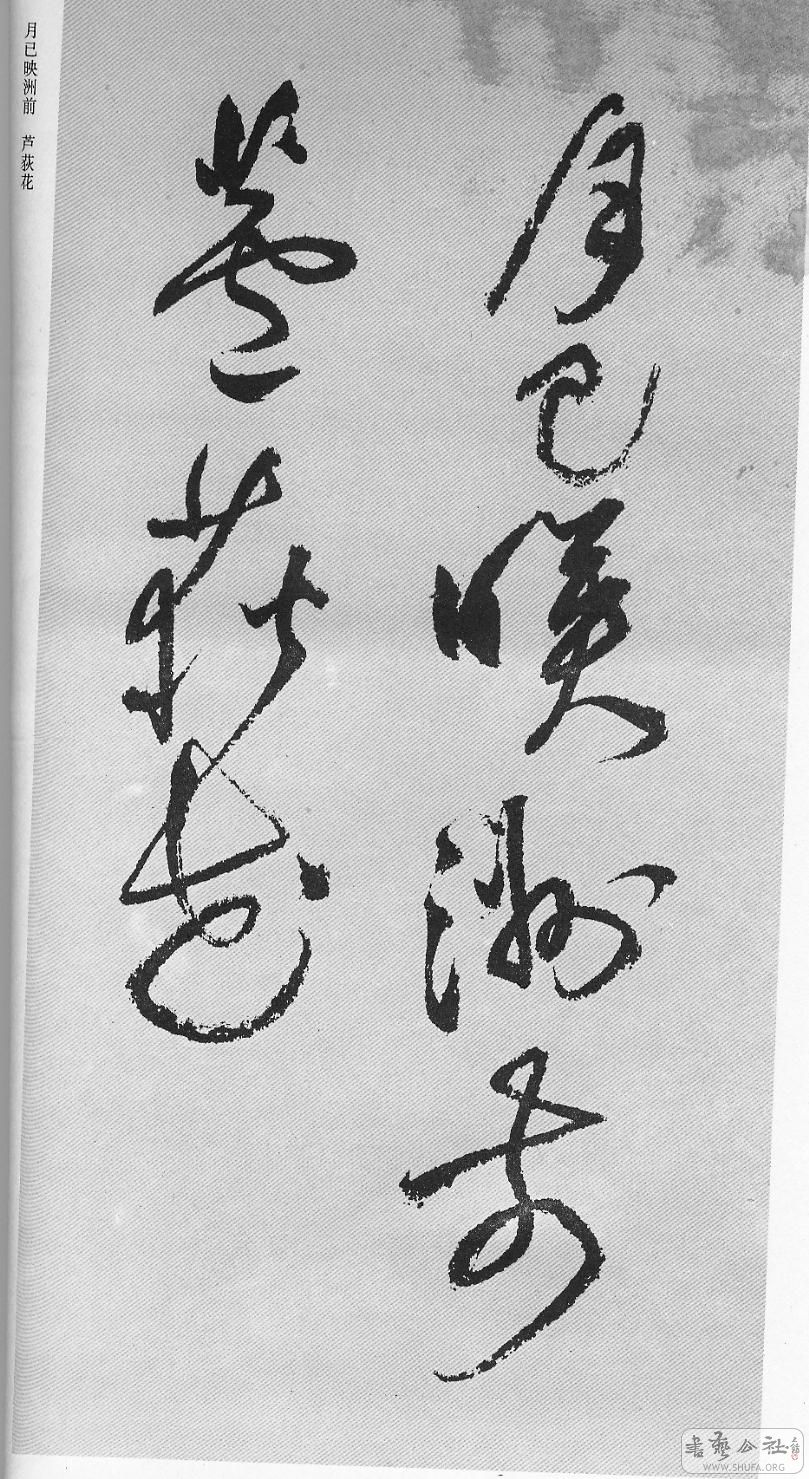 月已映洲前
蘆荻花
月已映洲前 芦荻花
書藝公社
WWW.SHUFA.ORG